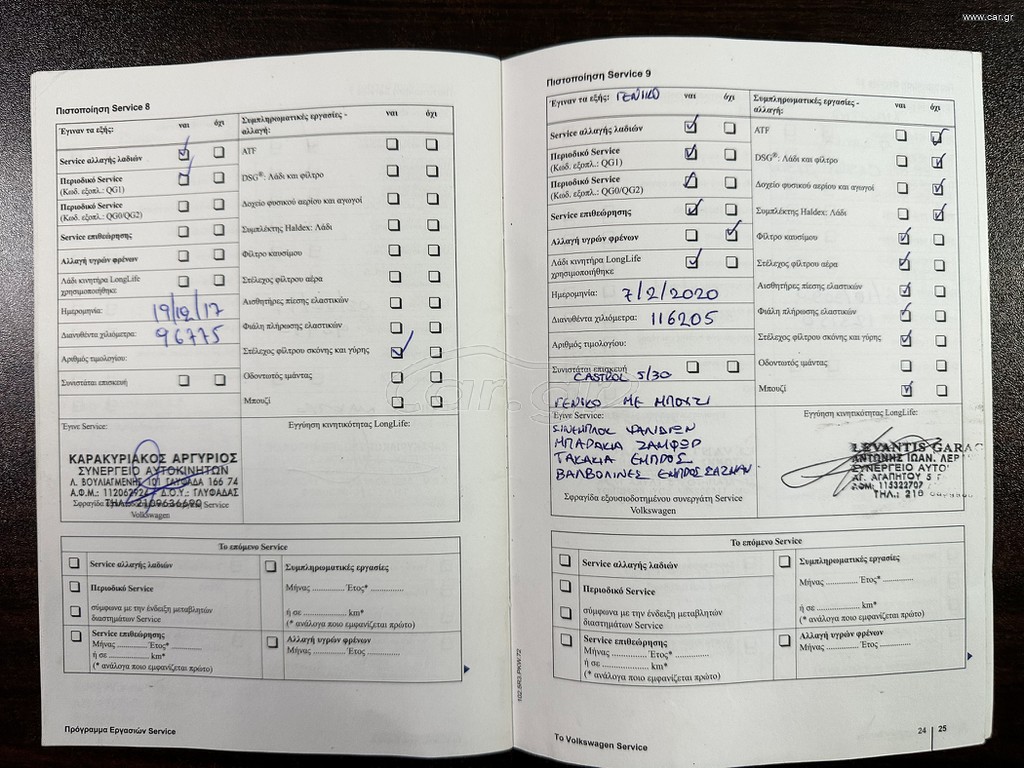 www.car.gr
Πιστοποίηση Service 8
Έγιναν τα εξής: ναι όχι
Service αλλαγής λαδιών
Περιοδικό Service
(Κωδ. εξοπλ.: QG1)
Περιοδικό Service
(Κωδ. εξοπλ.: QG0/QG2)
Service επιθεώρησης
Αλλαγή υγρών φρένων
Λάδι κινητήρα LongLife
χρησιμοποιήθηκε
Ημερομηνία: 19/12/17
Διανυθέντα χιλιόμετρα: 96775
Αριθμός τιμολογίου:
Συνιστάται επισκευή
Συμπληρωματικές εργασίες - ναι όχι
αλλαγή:
ATF
DSG®: Λάδι και φίλτρο
Δοχείο φυσικού αερίου και αγωγοί
Συμπλέκτης Haldex: Λάδι
Φίλτρο καυσίμου
Στέλεχος φίλτρου αέρα
Αισθητήρες πίεσης ελαστικών
Φιάλη πλήρωσης ελαστικών
Στέλεχος φίλτρου σκόνης και γύρης
Οδοντωτός ιμάντας
Μπουζί
Έγινε Service:
Εγγύηση κινητικότητας LongLife:
ΚΑΡΑΚΥΡΙΑΚΟΣ ΑΡΓΥΡΙΟΣ
ΣΥΝΕΡΓΕΙΟ ΑΥΤΟΚΙΝΗΤΩΝ
Λ. ΒΟΥΛΙΑΓΜΕΝΗΣ 101 ΓΛΥΦΑΔΑ 166 74
Δ.Ο.Υ.: ΓΛΥΦΑΔΑΣ
ΤΗΛ.: 2109636690
Service
Volkswagen
Το επόμενο Service
Service αλλαγής λαδιών
Περιοδικό Service
σύμφωνα με την ένδειξη μεταβλητών
διαστημάτων Service
Service επιθεώρησης
Μήνας .............. Έτος* ..............
ή σε .................... km*
(* ανάλογα ποιο εμφανίζεται πρώτο)
Συμπληρωματικές εργασίες
Μήνας .............. Έτος* ..............
ή σε .................... km*
(* ανάλογα ποιο εμφανίζεται πρώτο)
Αλλαγή υγρών φρένων
Μήνας .............. Έτος ..............
Πρόγραμμα Εργασιών Service
102.5R3.PKW.72
Πιστοποίηση Service 9
Έγιναν τα εξής: ΓΕΝΙΚΟ ναι όχι
Service αλλαγής λαδιών
Περιοδικό Service
(Κωδ. εξοπλ.: QG1)
Περιοδικό Service
(Κωδ. εξοπλ.: QG0/QG2)
Service επιθεώρησης
Αλλαγή υγρών φρένων
Λάδι κινητήρα LongLife
χρησιμοποιήθηκε
Ημερομηνία: 7/2/2020
Διανυθέντα χιλιόμετρα: 116205
Αριθμός τιμολογίου:
Συνιστάται επισκευή
CASTROL 5/30
ΓΕΝΙΚΟ ΜΕ ΜΠΟΥΖΙ
Έγινε Service:
ΣΙΝΕΜΠΛΟΚ ΨΑΛΙΔΙΩΝ
ΜΠΑΡΑΚΙΑ ΖΑΜΦΟΡ
ΤΑΚΑΚΙΑ ΕΜΠΡΟΣ
ΒΑΛΒΟΛΙΝΕΣ ΕΜΠΡΟΣ ΣΑΖΜΑΝ
Σφραγίδα εξουσιοδοτημένου συνεργάτη Service
Volkswagen
Συμπληρωματικές εργασίες - ναι όχι
αλλαγή:
ATF
DSG®: Λάδι και φίλτρο
Δοχείο φυσικού αερίου και αγωγοί
Συμπλέκτης Haldex: Λάδι
Φίλτρο καυσίμου
Στέλεχος φίλτρου αέρα
Αισθητήρες πίεσης ελαστικών
Φιάλη πλήρωσης ελαστικών
Στέλεχος φίλτρου σκόνης και γύρης
Οδοντωτός ιμάντας
Μπουζί
Εγγύηση κινητικότητας LongLife:
LEVANTIS GARA
ΑΝΤΩΝΗΣ ΙΩΑΝ. ΛΕΡ
ΣΥΝΕΡΓΕΙΟ ΑΥΤΟ
ΑΓ. ΑΓΑΠΗΤΟΥ 5
ΑΦΜ: 115322707
ΤΗΛ.: 210
Το επόμενο Service
Service αλλαγής λαδιών
Περιοδικό Service
σύμφωνα με την ένδειξη μεταβλητών
διαστημάτων Service
Service επιθεώρησης
Μήνας .............. Έτος* ..............
ή σε .................... km*
(* ανάλογα ποιο εμφανίζεται πρώτο)
Συμπληρωματικές εργασίες
Μήνας .............. Έτος* ..............
ή σε .................... km*
(* ανάλογα ποιο εμφανίζεται πρώτο)
Αλλαγή υγρών φρένων
Μήνας .............. Έτος ..............
Το Volkswagen Service
24 | 25